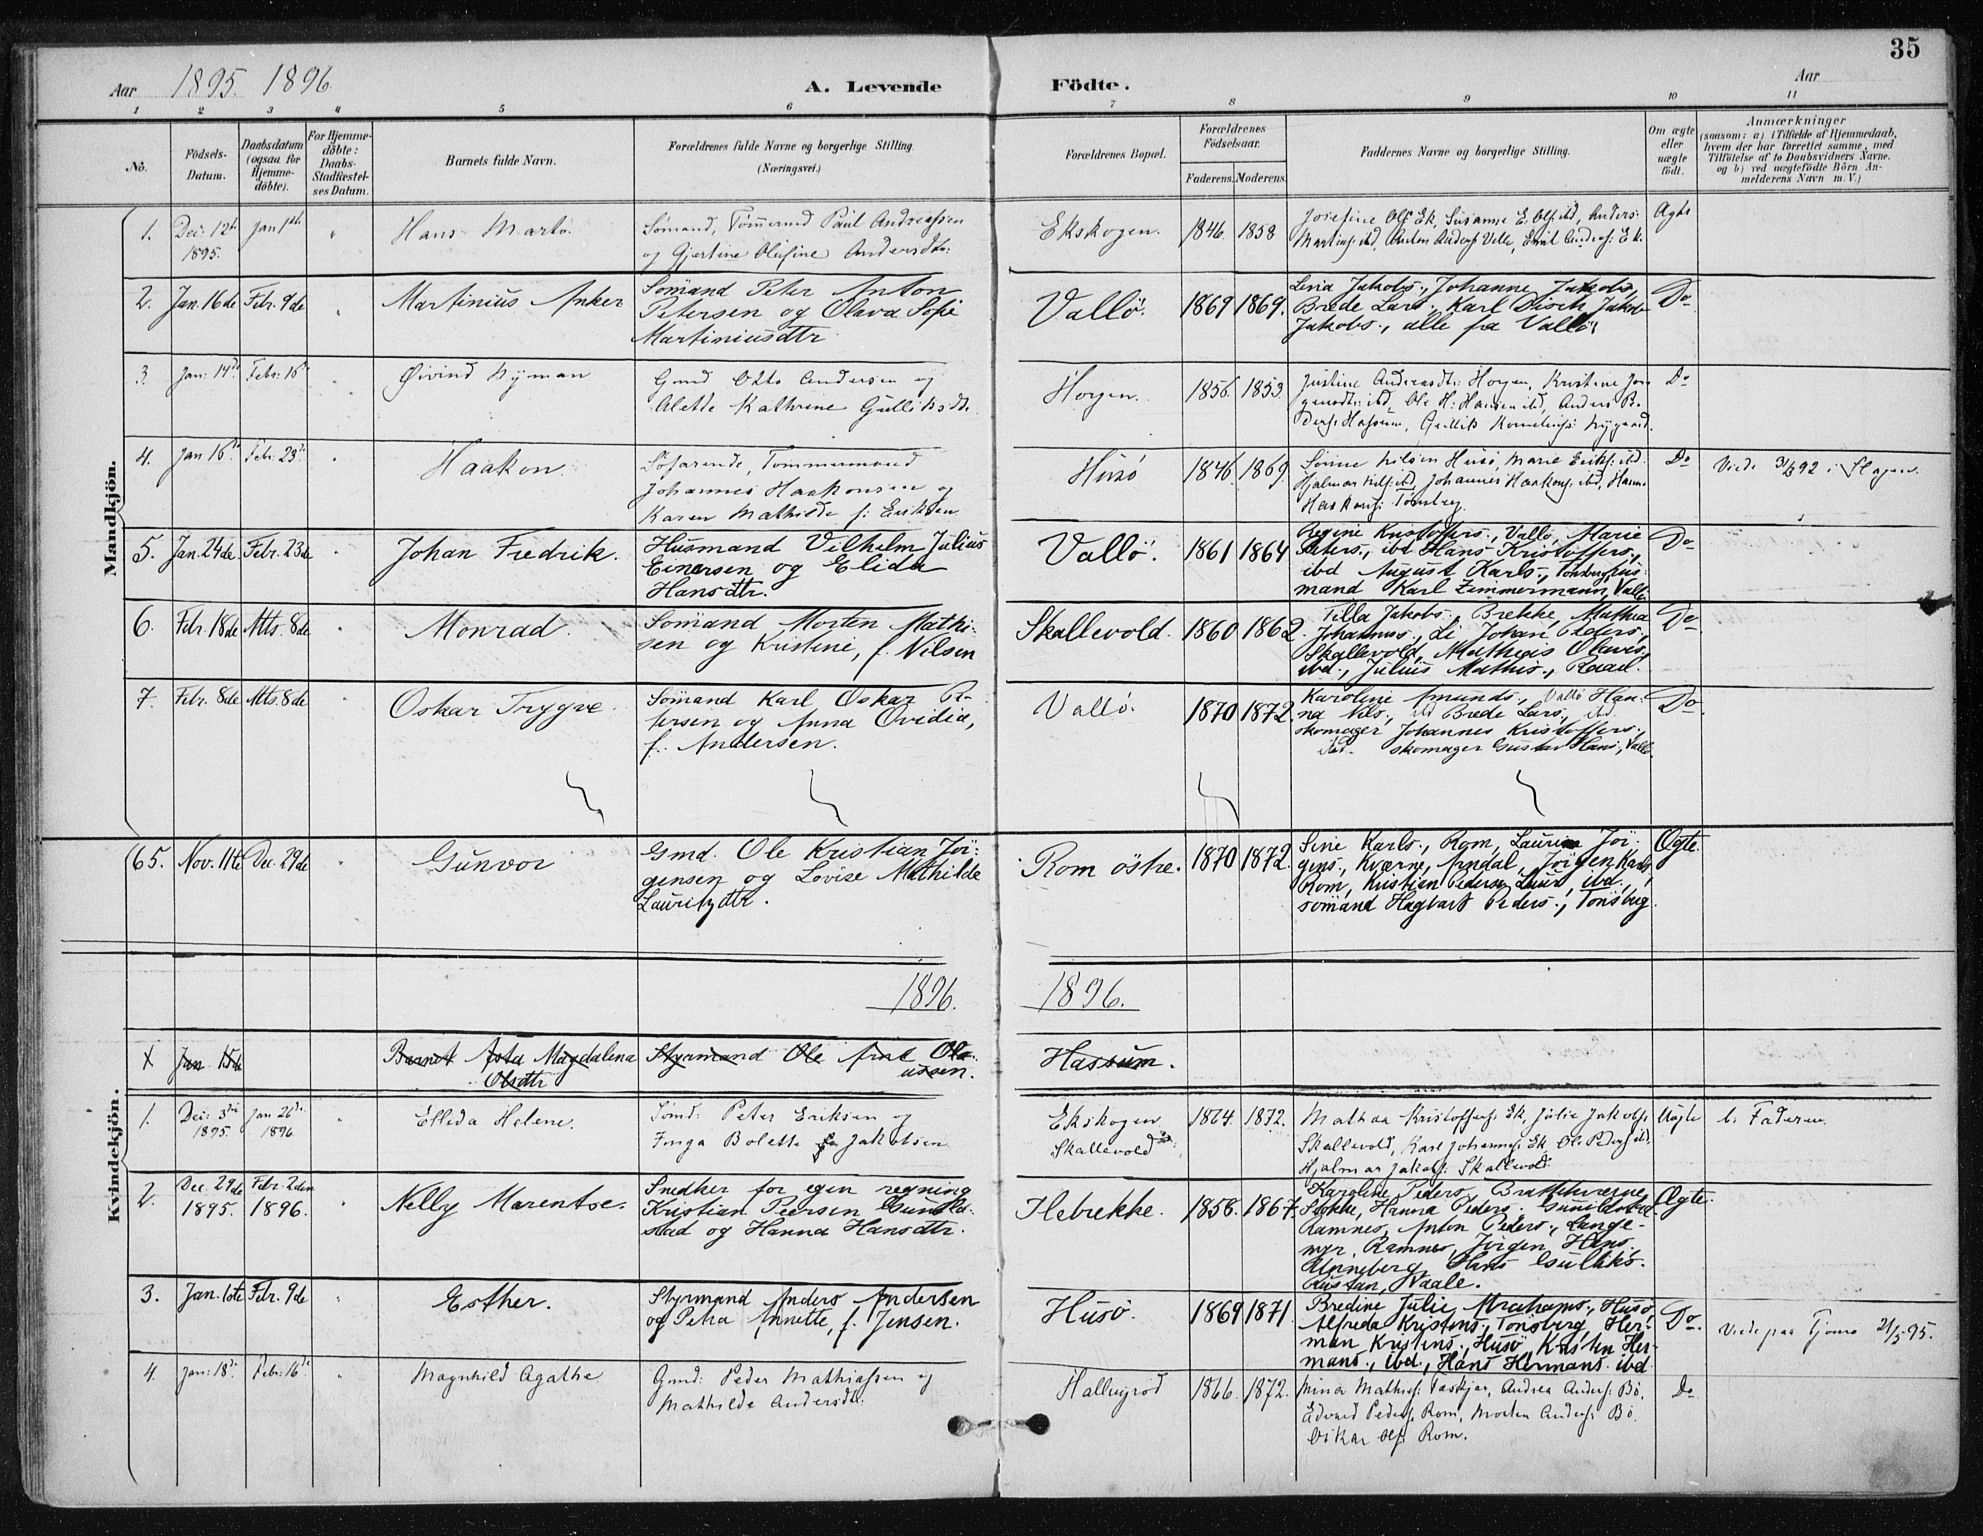 35
Aar 1895. 1896. A. Levende Födte. Aar
1 2 3 4 5 6 7 8 9 10 11
No. Födsels-Datum. Daabsdatum (ogsaa for Hjemme-döbte). For Hjemme-döbte: Daabs-Stadfæstel-ses Datum. Barnets fulde Navn. Forældrenes fulde Navne og borgerlige Stilling. (Næringsvei.) Forældrenes Bopæl. Forældrenes Födselsaar. Faderens. Moderens. Faddernes Navne og borgerlige Stilling. Om ægte eller uægte födt. Anmærkninger
(saasom: a) i Tilfælde af Hjemmedaab,
hvem der har forrettet samme, med
Tilföielse af to Daabsvidners Navne.
og b) ved uægtefödte Börn An-
melderens Navn m. V.)
Mandkjön.
1. Dec: 12te 1895. Jan 1ste " Hans Martin.
Sömand, Tömmermd Paul Andreassen
og Gjertine Olufine Andersdtr.
Ekskogen. 1846. 1858
Josefine Olss Ek, Susanne E. Olss ibd, Anders
Martins: ibd, Anton Anders: Velle, Emil Anders: Ek.
Ægte
2. Jan. 16de Febr. 9de " Martinius Anker
Sömand Peter Anton
Petersen og Olava Sofie
Martiniusdtr.
Vallö. 1869 1869.
Lina Jakobs., Johanne Jakobs.,
Brede Lars., Karl Disch, Jakob
Jakobs., alle fra Vallö.
Do
3. Jan: 14de Febr: 16de " Øivind Nyman
Gmd Otto Andersen og
Alette Kathrine Gulliksdtr.
Horgen. 1856. 1853.
Justine Andersdtr: Horgen, Kristine Jör-
gensdtr: ibd, Ole H: Hansen ibd, Anders P-
Do
4. Jan 16de Febr: 23de " Haakon.
Söfarende, Tömmermand
Johannes Haakonsen og
Karen Mathilde f: Eriksen
Husö 1846. 1869.
Sörine Nilsen Husö, Marie Eriks: ibd.
Hjalmar Nils: ibd, Johannes Haakons: ibd, Hans
Haakons: Tönsberg
Do
Viede 3/6 92 i Slagen.
5. Jan. 24de. Febr. 23de " Johan Fredrik.
Husmand Vilhelm Julius
Einarsen og Elida
Hansdtr.
Vallö. 1861 1864
Regine Kristoffers., Vallö, Marie
Peters., ibd Hans Kristoffers.,
ibd August Karls., Tönsberg, hus-
mand Karl Zimmermann, Vallö
Do
6. Febr. 18de Mts. 8de " Monrad.
Sömand Morten Mathi-
sen og Kristine, f. Nilsen
Skallevold. 1860 1862.
Tilla Jakobs., Brekke, Mathea
Johannes., Li Johan Peders.,
Skallevold, Mathias Olavis.,
ibd., Julius Mathis., Raael.
Do
7. Febr. 8de Mts. 8de " Oskar Trygve.
Sömand Karl Oskar Pe-
tersen og Anna Ovidia,
f. Andersen.
Vallö. 1870 1872.
Karoline Amunds., Vallö Han-
na Nils., ibd Brede Lars., ibd.
skomager Johannes Kristoffers.,
ibd. skomager Gustav Hans., Vallö.
Do
65. Nov. 11te Dec. 29de " Gunvor
Gmd. Ole Kristian Jör-
gensen og Lovise Mathilde
Lauritzdtr.
Rom östre. 1870 1872.
Sine Karls., Rom, Laurine Jör-
gens., Kværne, Arndal, Jörgen Karls.,
Rom, Kristian Pedersen Laur, ibd.,
sömand Hagbart Peders., Tönsberg.
Ægte.
1896. 1896.
Kvindekjön.
X Jan 15de Barnet Asta Magdalena
Olsdtr
Styrmand Ole Arnt Ola-
ussen.
Hassum.
1. Dec: 3die 1895. Jan 26de 1896 " Ellida Helene.
Sömd: Peter Eriksen og
Inga Bolette Jakobsen
Ekskogen
Skallevold
1864. 1872.
Mathea Kristoffers: Ek, Julie Jakobs:
Skallevold, Karl Johannes: Ek, Ole Peders: ibd,
Hjalmar Jakobs: Skallevold
Uægte
b: Faderen.
2. Dec. 29de 1895. Febr. 2den 1896. " Nelly Marentse.
Snedker for egen regning
Kristian Peersen Gunild-
stad og Hanna Hansdtr.
Ilebrekke. 1858. 1867.
Karoline Peders.,
Stokke, Hanna Peders.
Ramnes, Anton Peders., Lange-
myr, Ramnes, Jörgen Hans.
Unneberg, Hans Gulliks.
Rustan, Vaale.
Ægte.
3. Jan. 10de Febr. 9de " Esther.
Styrmand Anders Andersen
og Petra Annette, f. Jensen.
Husö. 1869 1871.
Bredine Julie Abrahams., Husö
Alfreda Kristens., Tönsberg, Her-
man Kristens., Husö, Kristen Her-
mans., ibd., Hans Hermans. ibd
Do.
Viede paa Tjömö 21/5 95.
4. Jan: 18de Febr: 16de " Magnhild Agathe
Gmd: Peder Mathiassen og
Mathilde Andersdtr.
Hallingröd 1866. 1872.
Mina Mathis: Taskjær, Andrea Anders: Bö,
Edvard Peders, Rom, Morten Anders: Bö.
Oskar Ols: Rom.
Do